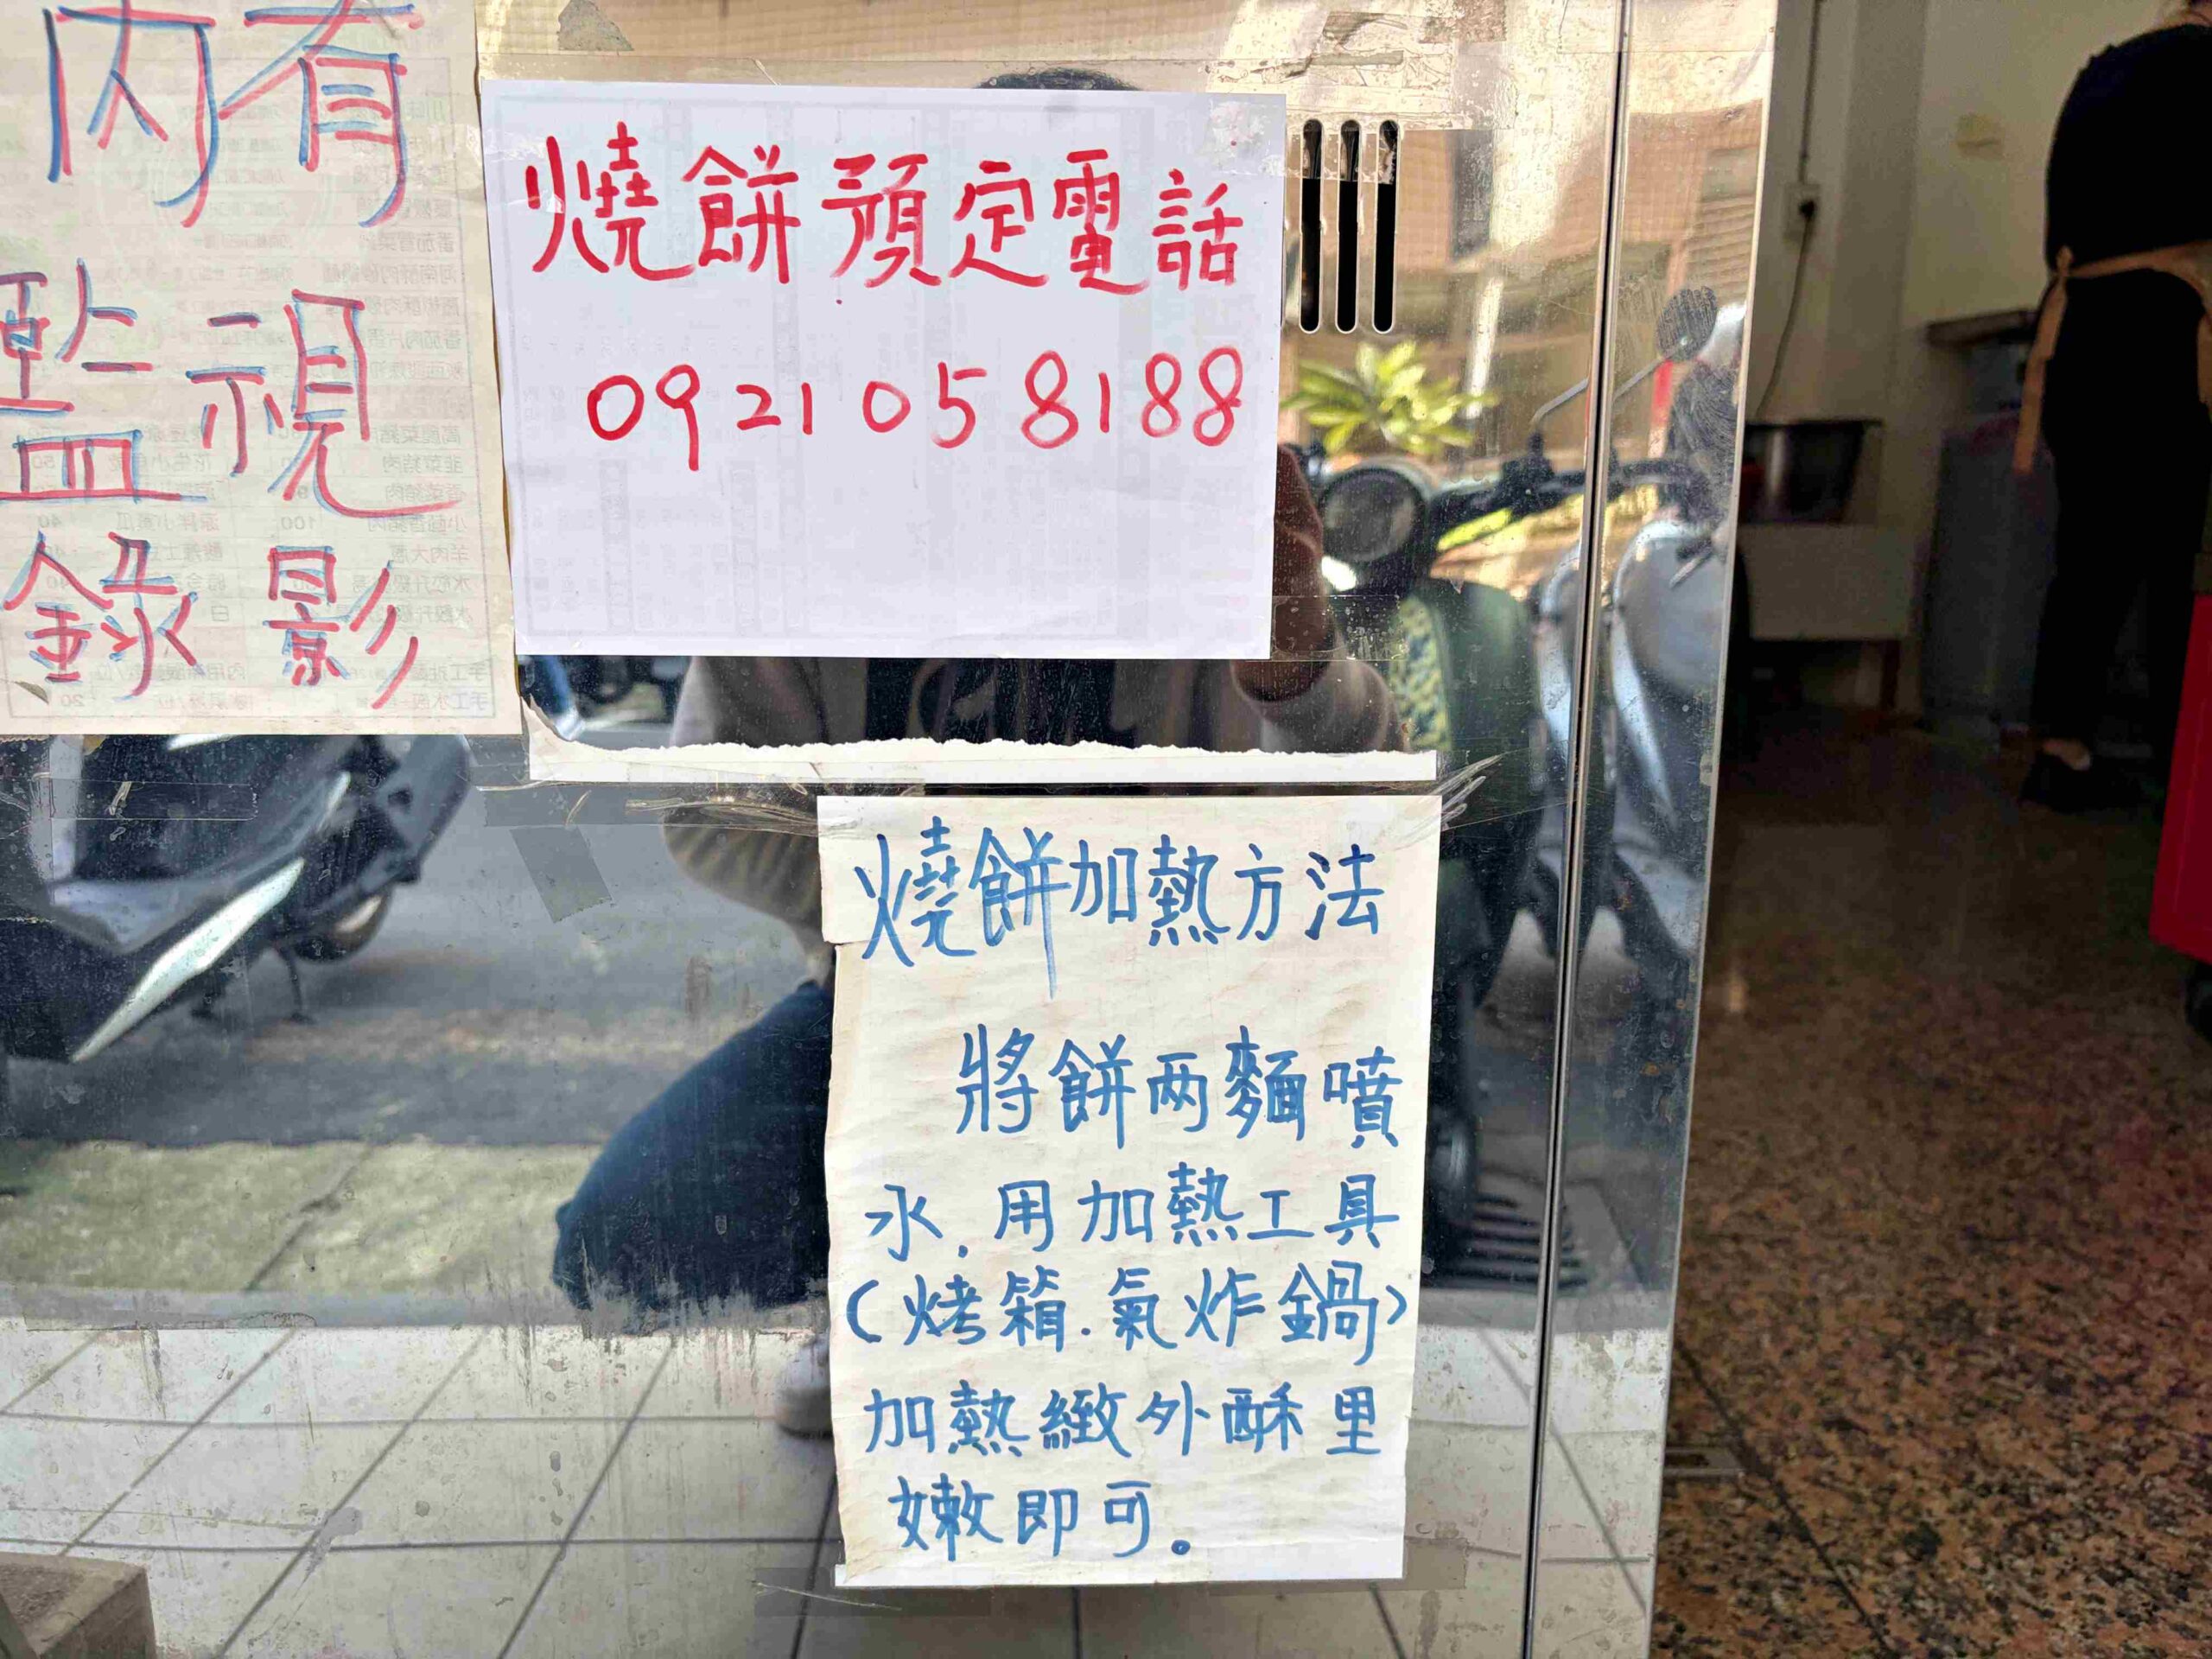 內有
監視
錄影
燒餅預定電話
0921058188
燒餅加熱方法
將餅两麵噴
水,用加熱工具
(烤箱.氣炸鍋)
加熱緻外酥里
嫩即可。